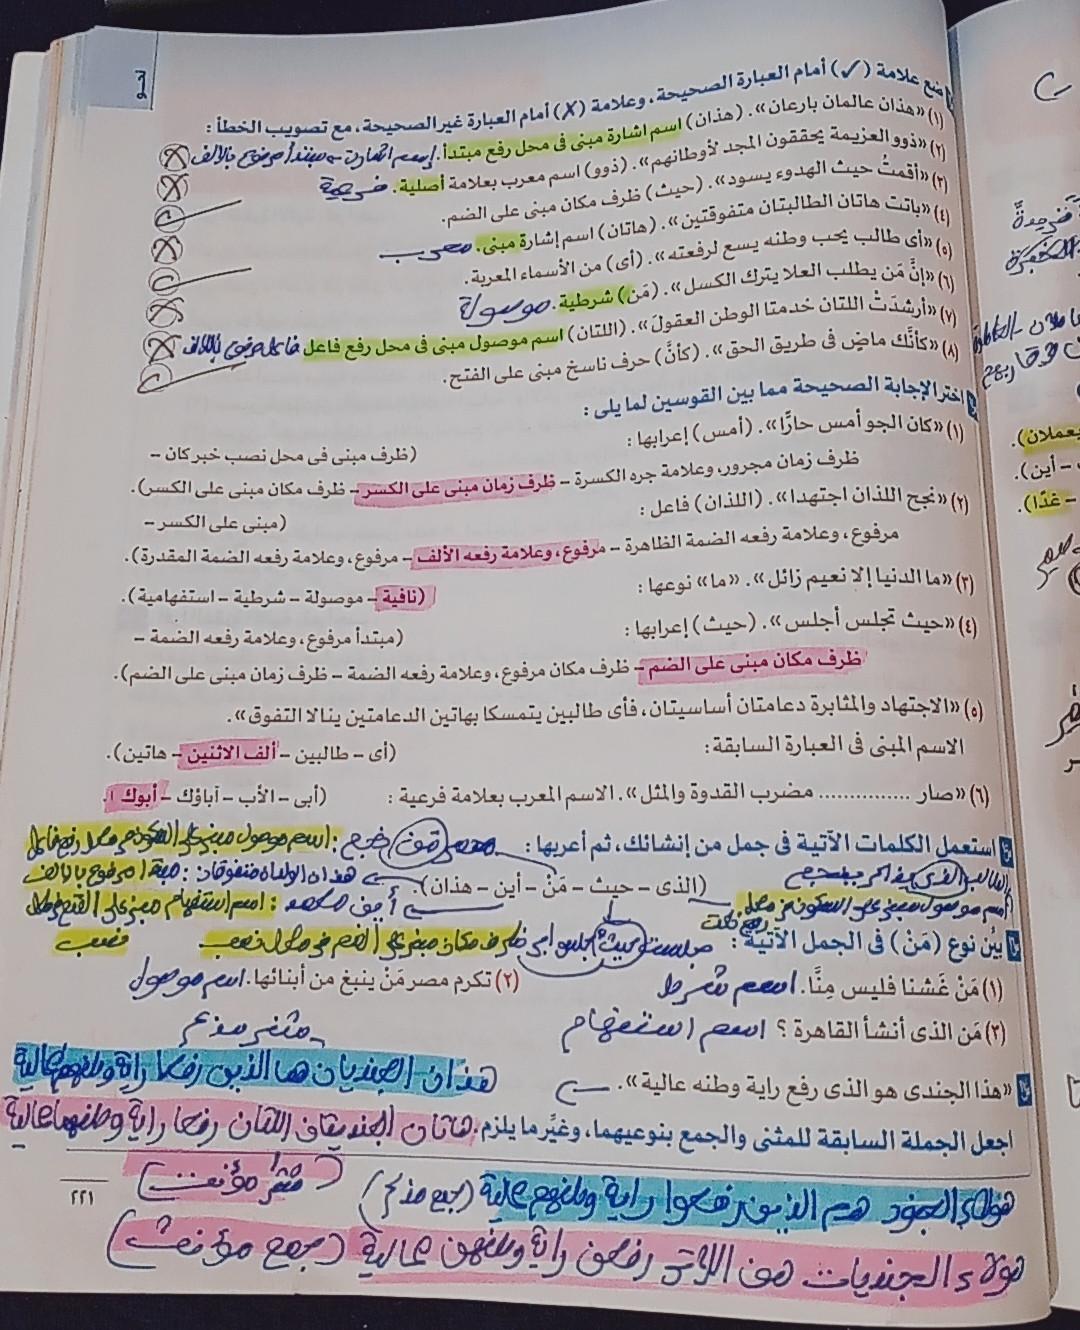 نحو
ضع علامة (✓) أمام العبارة الصحيحة، وعلامة (✗) أمام العبارة غير الصحيحة، مع تصويب الخطأ :
(١) «هذان عالمان بارعان». (هذان) اسم اشارة مبنى فى محل رفع مبتدأ. إسم إشارة - مبتدأ مرفوع بالألف
(٢) «ذوو العزيمة يحققون المجد لأوطانهم». (ذوو) اسم معرب بعلامة أصلية. فرعية
(٣) «أقمتُ حيث الهدوء يسود». (حيث) ظرف مكان مبنى على الضم.
(٤) «باتت هاتان الطالبتان متفوقتين». (هاتان) اسم إشارة مبنى. معرب
(٥) «أى طالب يحب وطنه يسع لرفعته». (أى) من الأسماء المعربة.
(٦) «إنَّ مَن يطلب العلا يترك الكسل». (مَن) شرطية. موصولة
(٧) «أرشدَتْ اللتان خدمتا الوطن العقولَ». (اللتان) اسم موصول مبنى فى محل رفع فاعل فاعل مرفوع بالألف
(٨) «كأنَّك ماضٍ فى طريق الحق». (كأنَّ) حرف ناسخ مبنى على الفتح.
اختر الإجابة الصحيحة مما بين القوسين لما يلى :
(١) «كان الجو أمس حارًّا». (أمس) إعرابها : (ظرف مبنى فى محل نصب خبر كان –
ظرف زمان مجرور، وعلامة جره الكسرة – ظرف زمان مبنى على الكسر – ظرف مكان مبنى على الكسر).
(٢) «نجح اللذان اجتهدا». (اللذان) فاعل : (مبنى على الكسر –
مرفوع، وعلامة رفعه الضمة الظاهرة – مرفوع، وعلامة رفعه الألف – مرفوع، وعلامة رفعه الضمة المقدرة).
(٣) «ما الدنيا إلا نعيم زائل». «ما» نوعها : (نافية – موصولة – شرطية – استفهامية).
(٤) «حيث تجلس أجلس». (حيث) إعرابها : (مبتدأ مرفوع، وعلامة رفعه الضمة –
ظرف مكان مبنى على الضم – ظرف مكان مرفوع، وعلامة رفعه الضمة – ظرف زمان مبنى على الضم).
(٥) «الاجتهاد والمثابرة دعامتان أساسيتان، فأى طالبين يتمسكا بهاتين الدعامتين ينالا التفوق».
الاسم المبنى فى العبارة السابقة : (أى – طالبين – ألف الاثنين – هاتين).
(٦) «صار ............... مضرب القدوة والمثل». الاسم المعرب بعلامة فرعية : (أبى – الأب – آباؤك – أبوك).
استعمل الكلمات الآتية فى جمل من إنشائك، ثم أعربها : من نجح : اسم موصول مبنى على السكون فى محل رفع فاعل
(الذى – حيث – مَنْ – أين – هذان). هذان الولدان متفوقان : مبتدأ مرفوع بالألف
أين محمد : اسم استفهام مبنى على الفتح فى محل
اسم موصول مبنى على السكون فى محل رفع نعت
بيِّن نوع (مَنْ) فى الجمل الآتية : جلست حيث جلس أبى ظرف مكان مبنى على الضم فى محل نصب
(١) مَنْ غَشنا فليس مِنَّا. اسم شرط (٢) تكرم مصر مَنْ ينبغ من أبنائها. اسم موصول
(٣) مَن الذى أنشأ القاهرة ؟ اسم استفهام
مثنى مذكر
«هذا الجندى هو الذى رفع راية وطنه عالية». هذان الجنديان هما اللذين رفعا راية وطنهم عالية
اجعل الجملة السابقة للمثنى والجمع بنوعيهما، وغيِّر ما يلزم. هاتان الجنديتان اللتان رفعا راية وطنهما عالية
(مثنى مؤنث)
هؤلاء الجنود هم الذين رفعوا راية وطنهم عالية (جمع مذكر)
هؤلاء الجنديات هن اللاتى رفعن راية وطنهن عالية (جمع مؤنث)
٢٢١
فريدة
يعملان).
– أين).
– غدًا).